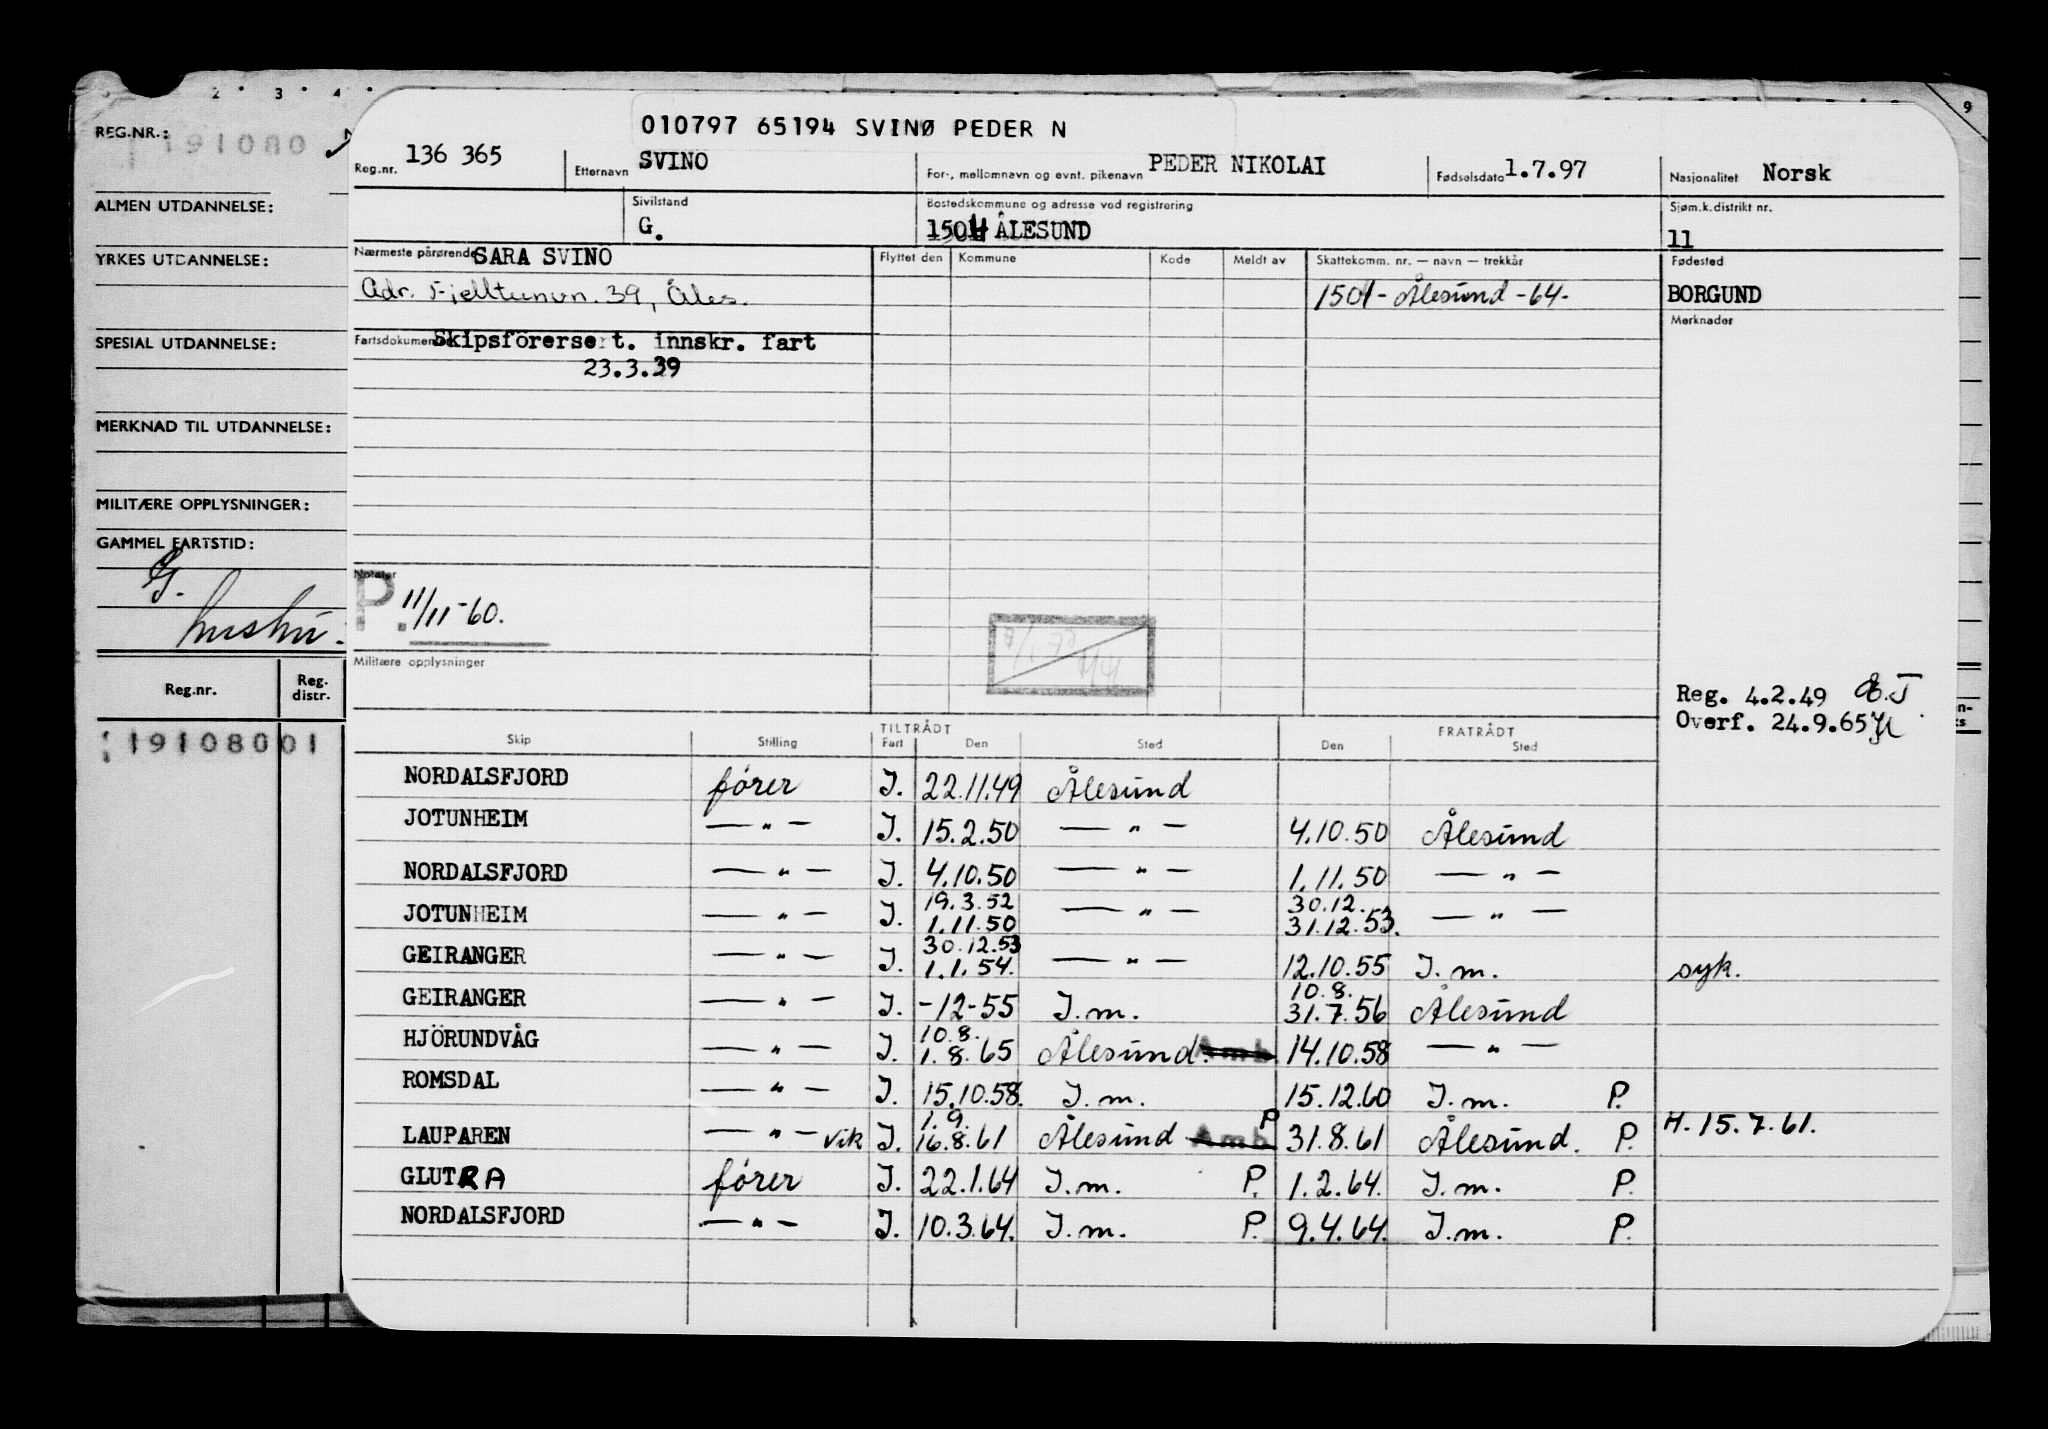 2 · 3 · 4 · 9
REG.NR.: 191080
ALMEN UTDANNELSE:
YRKES UTDANNELSE:
SPESIAL UTDANNELSE:
MERKNAD TIL UTDANNELSE:
MILITÆRE OPPLYSNINGER:
GAMMEL FARTSTID:
G.
Reg.nr. Reg. distr.
19108001
010797 65194 SVINØ PEDER N
Reg.nr. 136 365 Etternavn SVINO For-, mellomnavn og evnt. pikenavn PEDER NIKOLAI Fødselsdato 1.7.97 Nasjonalitet Norsk
Sivilstand Bostedskommune og adresse ved registrering Sjøm.k.distrikt nr.
G. 1504 ÅLESUND 11
Nærmeste pårørende SARA SVINO Flyttet den Kommune Kode Meldt av Skattekomm. nr. — navn — trekkår Fødested
Adr. Fjelltunvn. 39, Åles. 1501 - Ålesund - 64 - BORGUND
Merknader
Fartsdokumenter Skipsförersert. innskr. fart
23.3.39
Notater
P. 11/11-60.
Militære opplysninger
Reg. 4.2.49
Overf. 24.9.65
TILTRÅDT FRATRÅDT
Skip Stilling Fart Den Sted Den Sted
NORDALSFJORD fører I. 22.11.49 Ålesund
JOTUNHEIM — " — I. 15.2.50 — " — 4.10.50 Ålesund
NORDALSFJORD — " — I. 4.10.50 — " — 1.11.50 — " —
19.3.52 30.12.
JOTUNHEIM — " — I. 1.11.50 — " — 31.12.53. — " —
30.12.53
GEIRANGER — " — I. 1.1.54. — " — 12.10.55 I.m. syk.
10.8.
GEIRANGER — " — I. -12-55 I.m. 31.7.56 Ålesund
10.8.
HJÖRUNDVÅG — " — I. 1.8.65 Ålesund. Amb. 14.10.58 — " —
ROMSDAL — " — I. 15.10.58. I.m. 15.12.60 I.m. P.
1.9. P
LAUPAREN — " — vik I. 16.8.61 Ålesund Amb 31.8.61 Ålesund. P. H. 15.7.61.
GLUTRA fører I. 22.1.64 I.m. P. 1.2.64. I.m. P.
NORDALSFJORD — " — I. 10.3.64. I.m. P. 9.4.64. I.m. P.